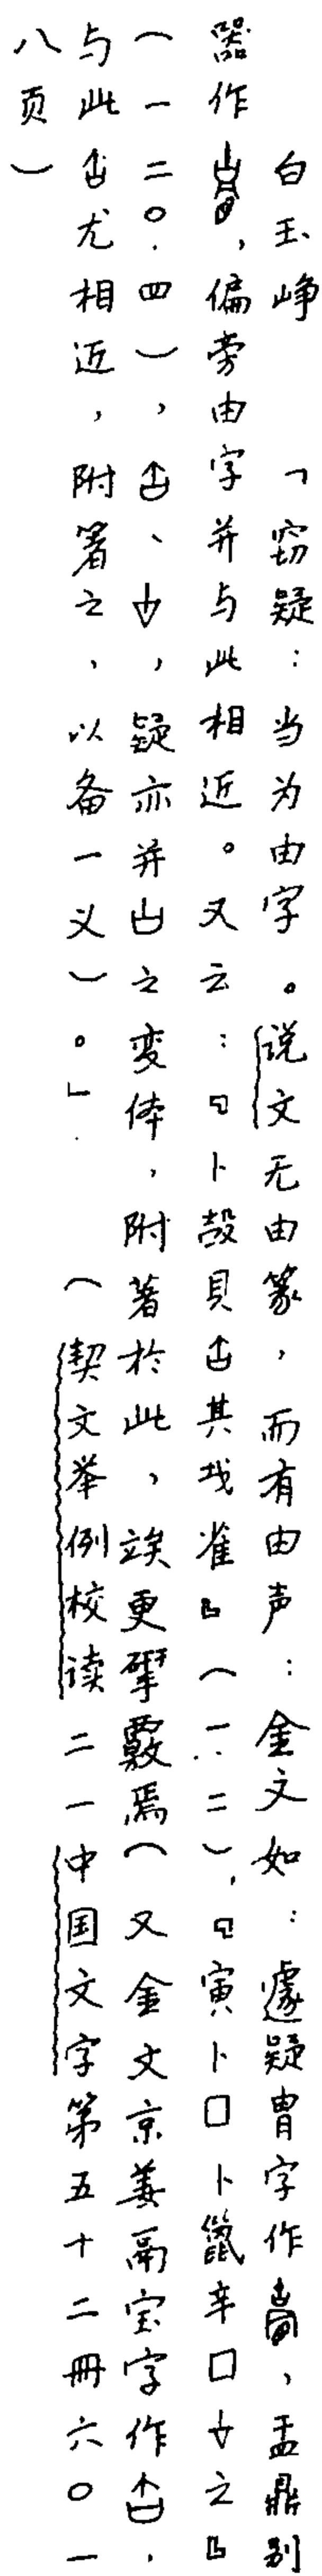 白玉峥　「窃疑：当为由字。说文无由篆，而有由声：金文如：遽疑胄字作，盂鼎别
器作，偏旁由字并与此相近。又云：『卜㱿贝其𢦔雀』（一.二），『寅卜□卜鼠辛□之』
（一二〇.四），、，疑亦并之变体，附著於此，竢更揅覈焉（又金文京姜鬲宝字作，
与此尤相近，附箸之，以备一义）。」　（契文举例校读二一中国文字第五十二册六〇一
八页）